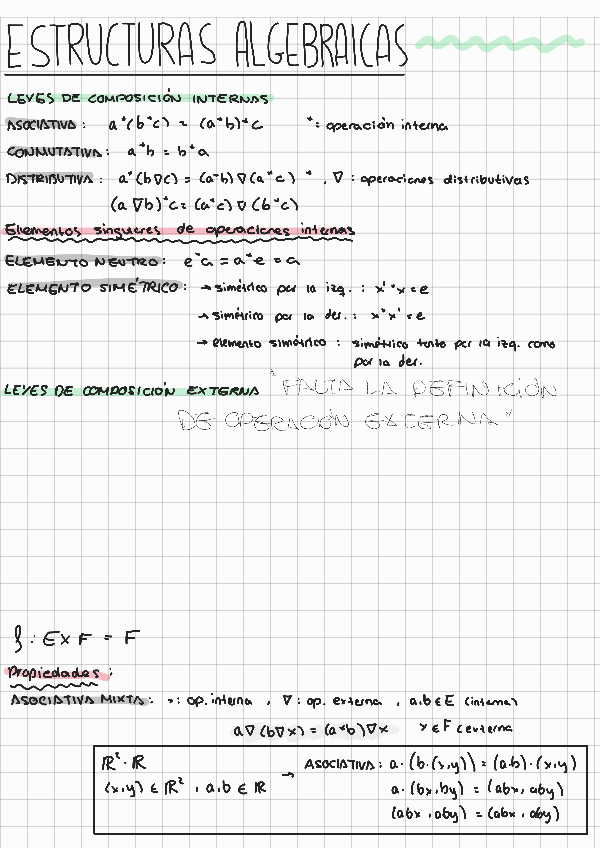 ESTRUCTURAS ALGEBRAICAS
LEYES DE COMPOSICIÓN INTERNAS
ASOCIATIVA: a*(b*c) = (a*b)*c *: operación interna
CONMUTATIVA: a*b = b*a
DISTRIBUTIVA: a*(b∇c) = (a*b)∇(a*c) *, ∇: operaciones distributivas
(a∇b)*c = (a*c)∇(b*c)
Elementos singueres de operaciones internas
ELEMENTO NEUTRO: e*a = a*e = a
ELEMENTO SIMÉTRICO: → simétrico por la izq.: x'*x = e
→ simétrico por la der.: x*x' = e
→ elemento simétrico: simétrico tanto por la izq. como
por la der.
LEYES DE COMPOSICIÓN EXTERNA "FALTA LA DEFINICIÓN
DE OPERACIÓN EXCERNA"
f: E x F = F
Propiedades:
ASOCIATIVA MIXTA: *: op. interna, ∇: op. externa, a,b ∈ E (interna)
a∇(b∇x) = (a*b)∇x x ∈ F (externa
ℝ² · ℝ → ASOCIATIVA: a·(b·(x,y)) = (a·b)·(x,y)
(x,y) ∈ ℝ², a,b ∈ ℝ a·(bx,by) = (abx,aby)
(abx,aby) = (abx,aby)